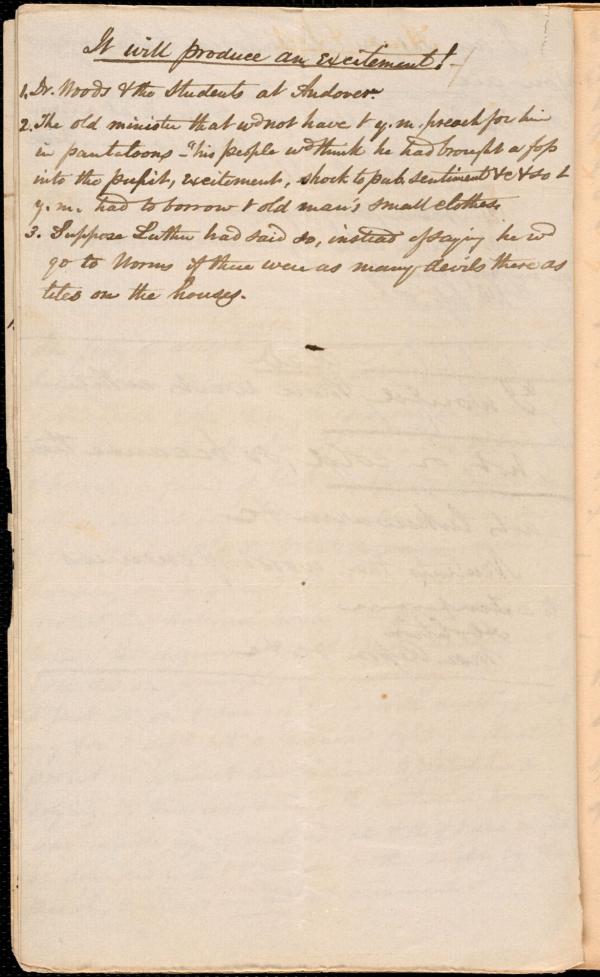 It will produce an excitement!—
1. Dr. Woods & the Students at Andover.
2. The old minister that wd not have t y.m. preach for him
in pantaloons — "his people wd think he had brought a fop
into the pulpit, excitement, shock to pub. sentiment &c & so t
y.m. had to borrow t old man's small clothes.
3. Suppose Luther had said so, instead of saying he wd
go to Worms if there were as many devils there as
tiles on the houses.